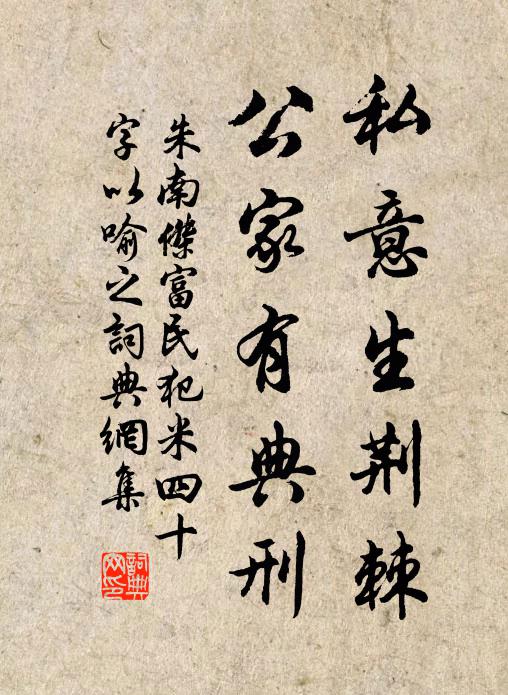 私意生荆棘
公家有典刑
朱南傑富民犯米四十
字以喻之詞典網集
詞典网印